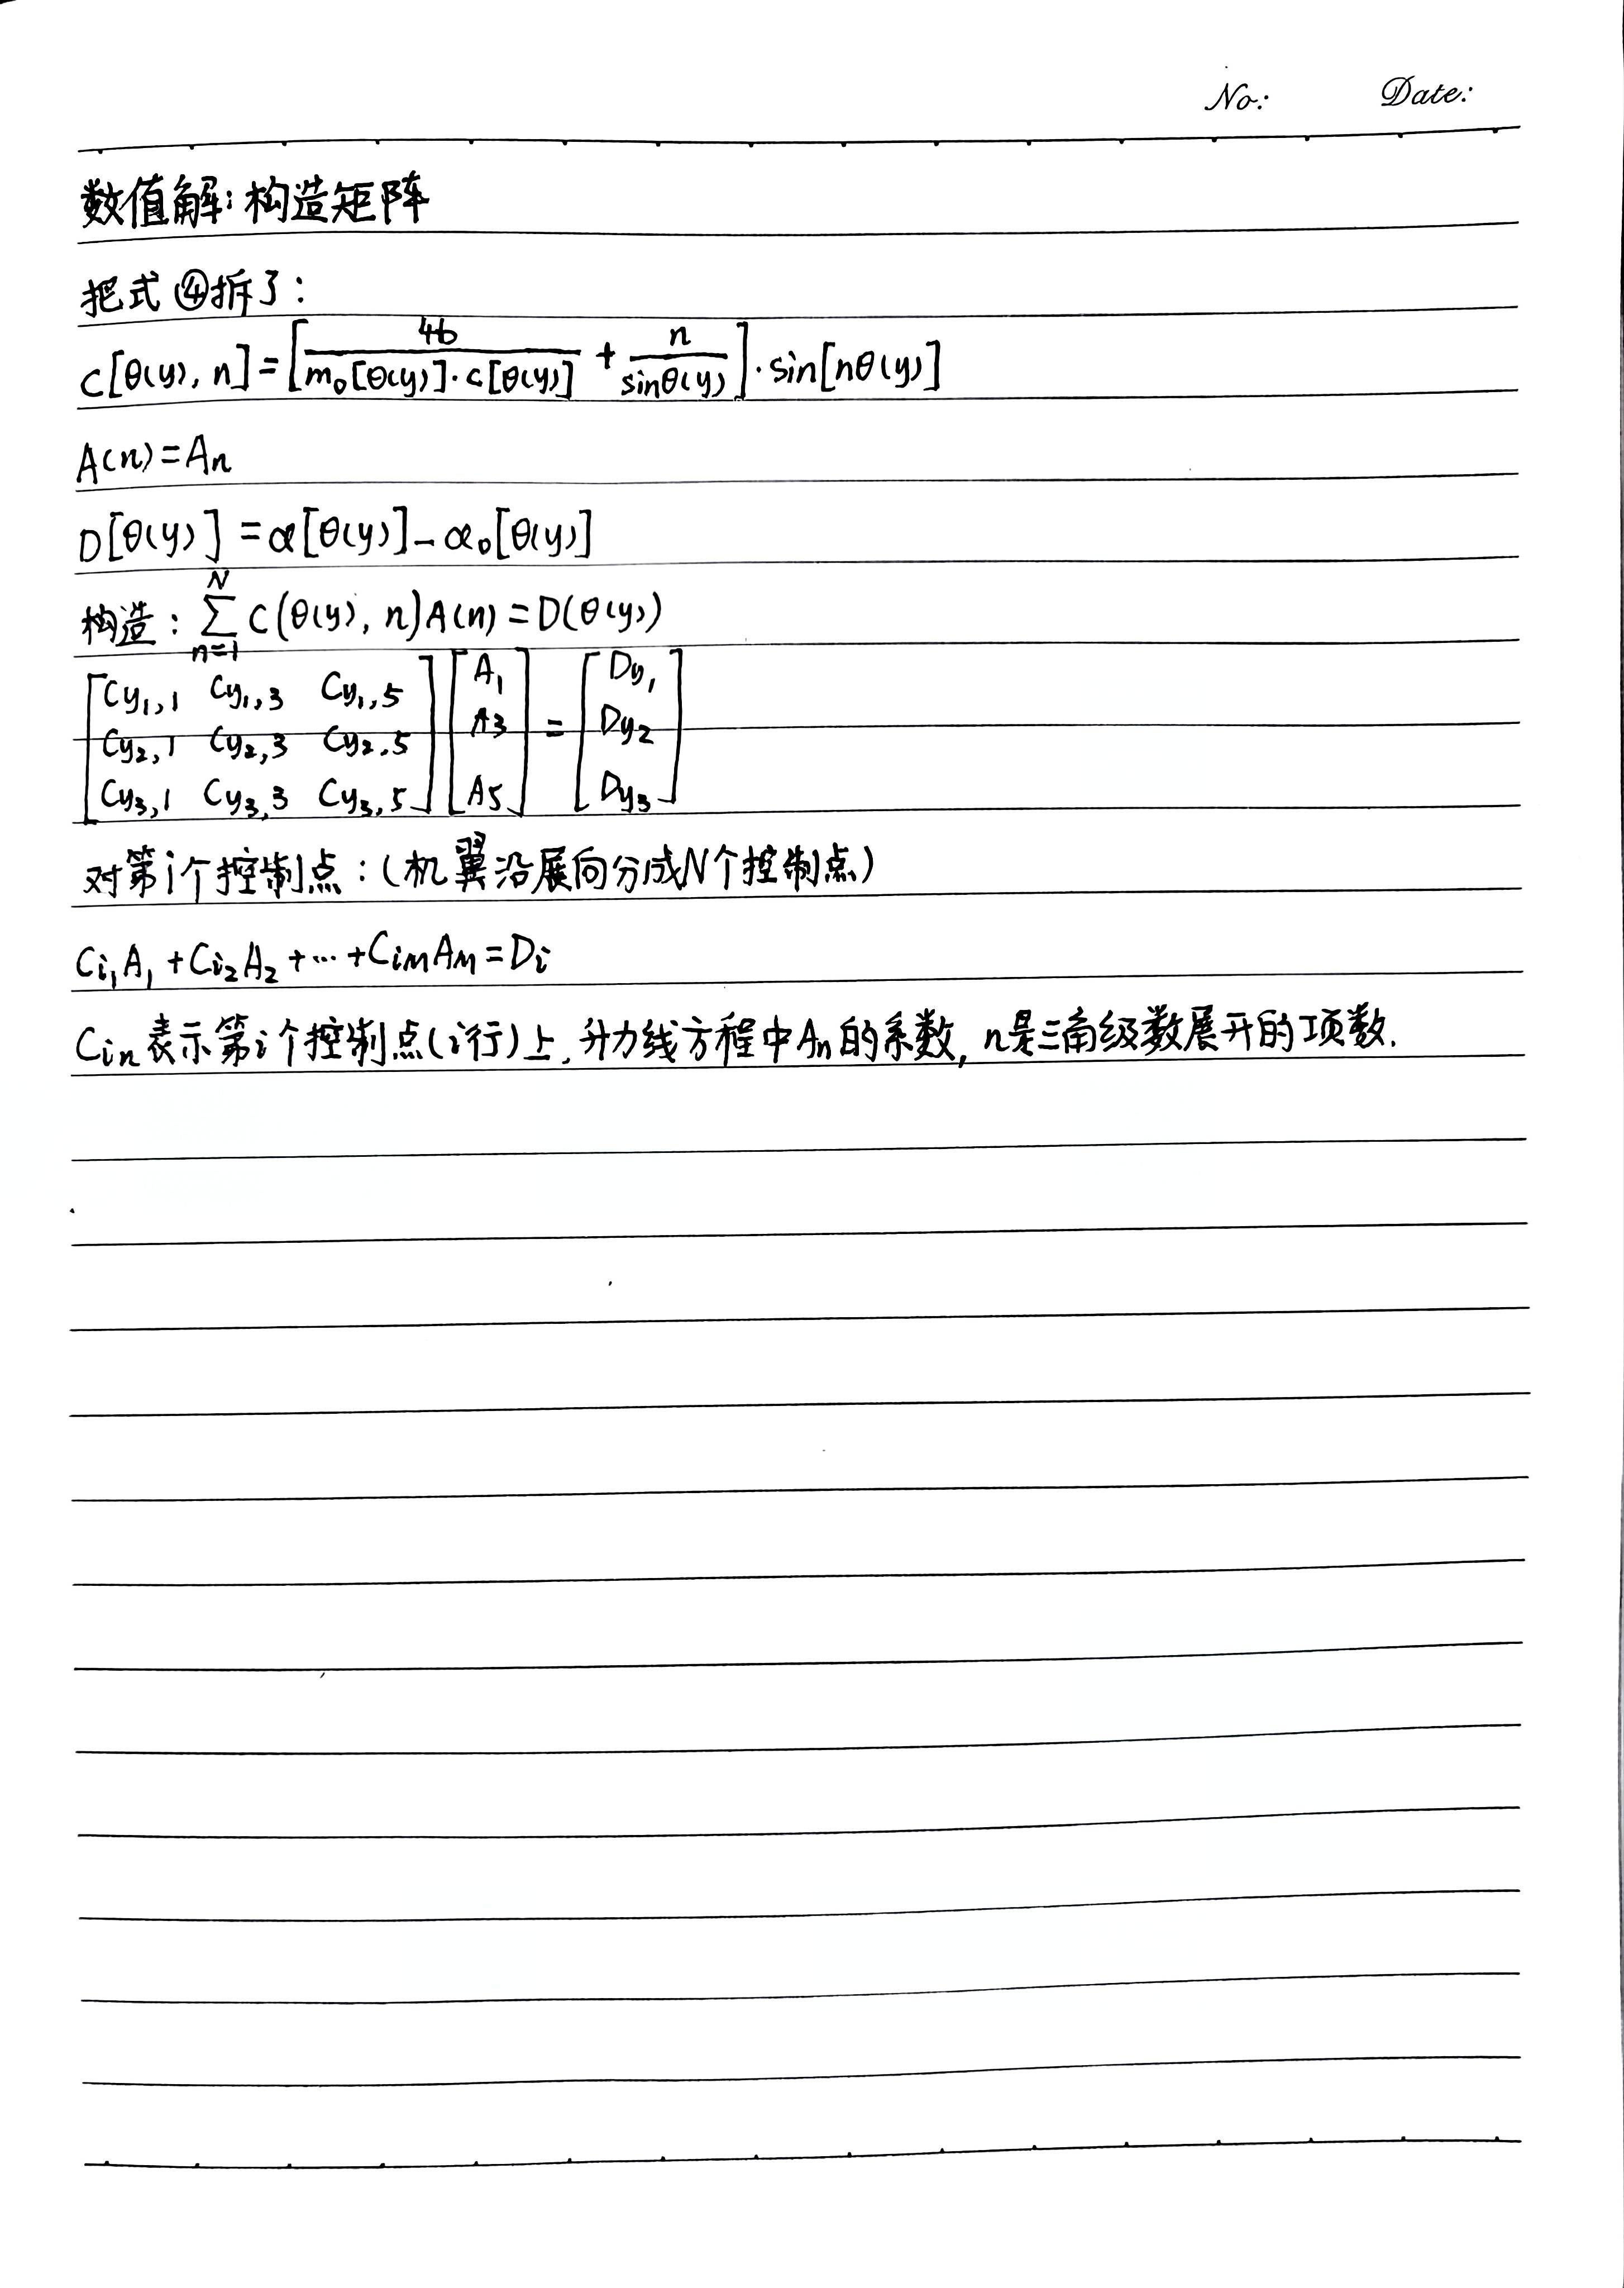 No: Date:
数值解:构造矩阵
把式④拆了:
C[θ(y), n] = [4b/(m₀[θ(y)]·c[θ(y)]) + n/sinθ(y)]·sin[nθ(y)]
A(n)=Aₙ
D[θ(y)] = α[θ(y)] - α₀[θ(y)]
构造: ∑_{n=1}^{N} C(θ(y), n)A(n) = D(θ(y))
[Cy₁,1 Cy₁,3 Cy₁,5] [A₁] [Dy₁]
[Cy₂,1 Cy₂,3 Cy₂,5] [A₃] = [Dy₂]
[Cy₃,1 Cy₃,3 Cy₃,5] [A₅] [Dy₃]
对第i个控制点:(机翼沿展向分成N个控制点)
Ci₁A₁ + Ci₂A₂ + ⋯ + CiMAM = Di
Cin表示第i个控制点(i行)上,升力线方程中An的系数, n是三角级数展开的项数.